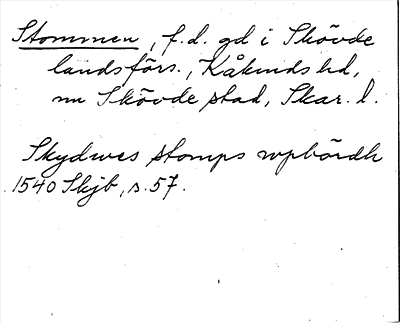 Stommen, f.d. gd i Skövde
landsförs., Kåkinds hd,
nu Skövde stad, Skar. l.
Skydwes stomps wpbördh
1540 Skjb, s. 57.